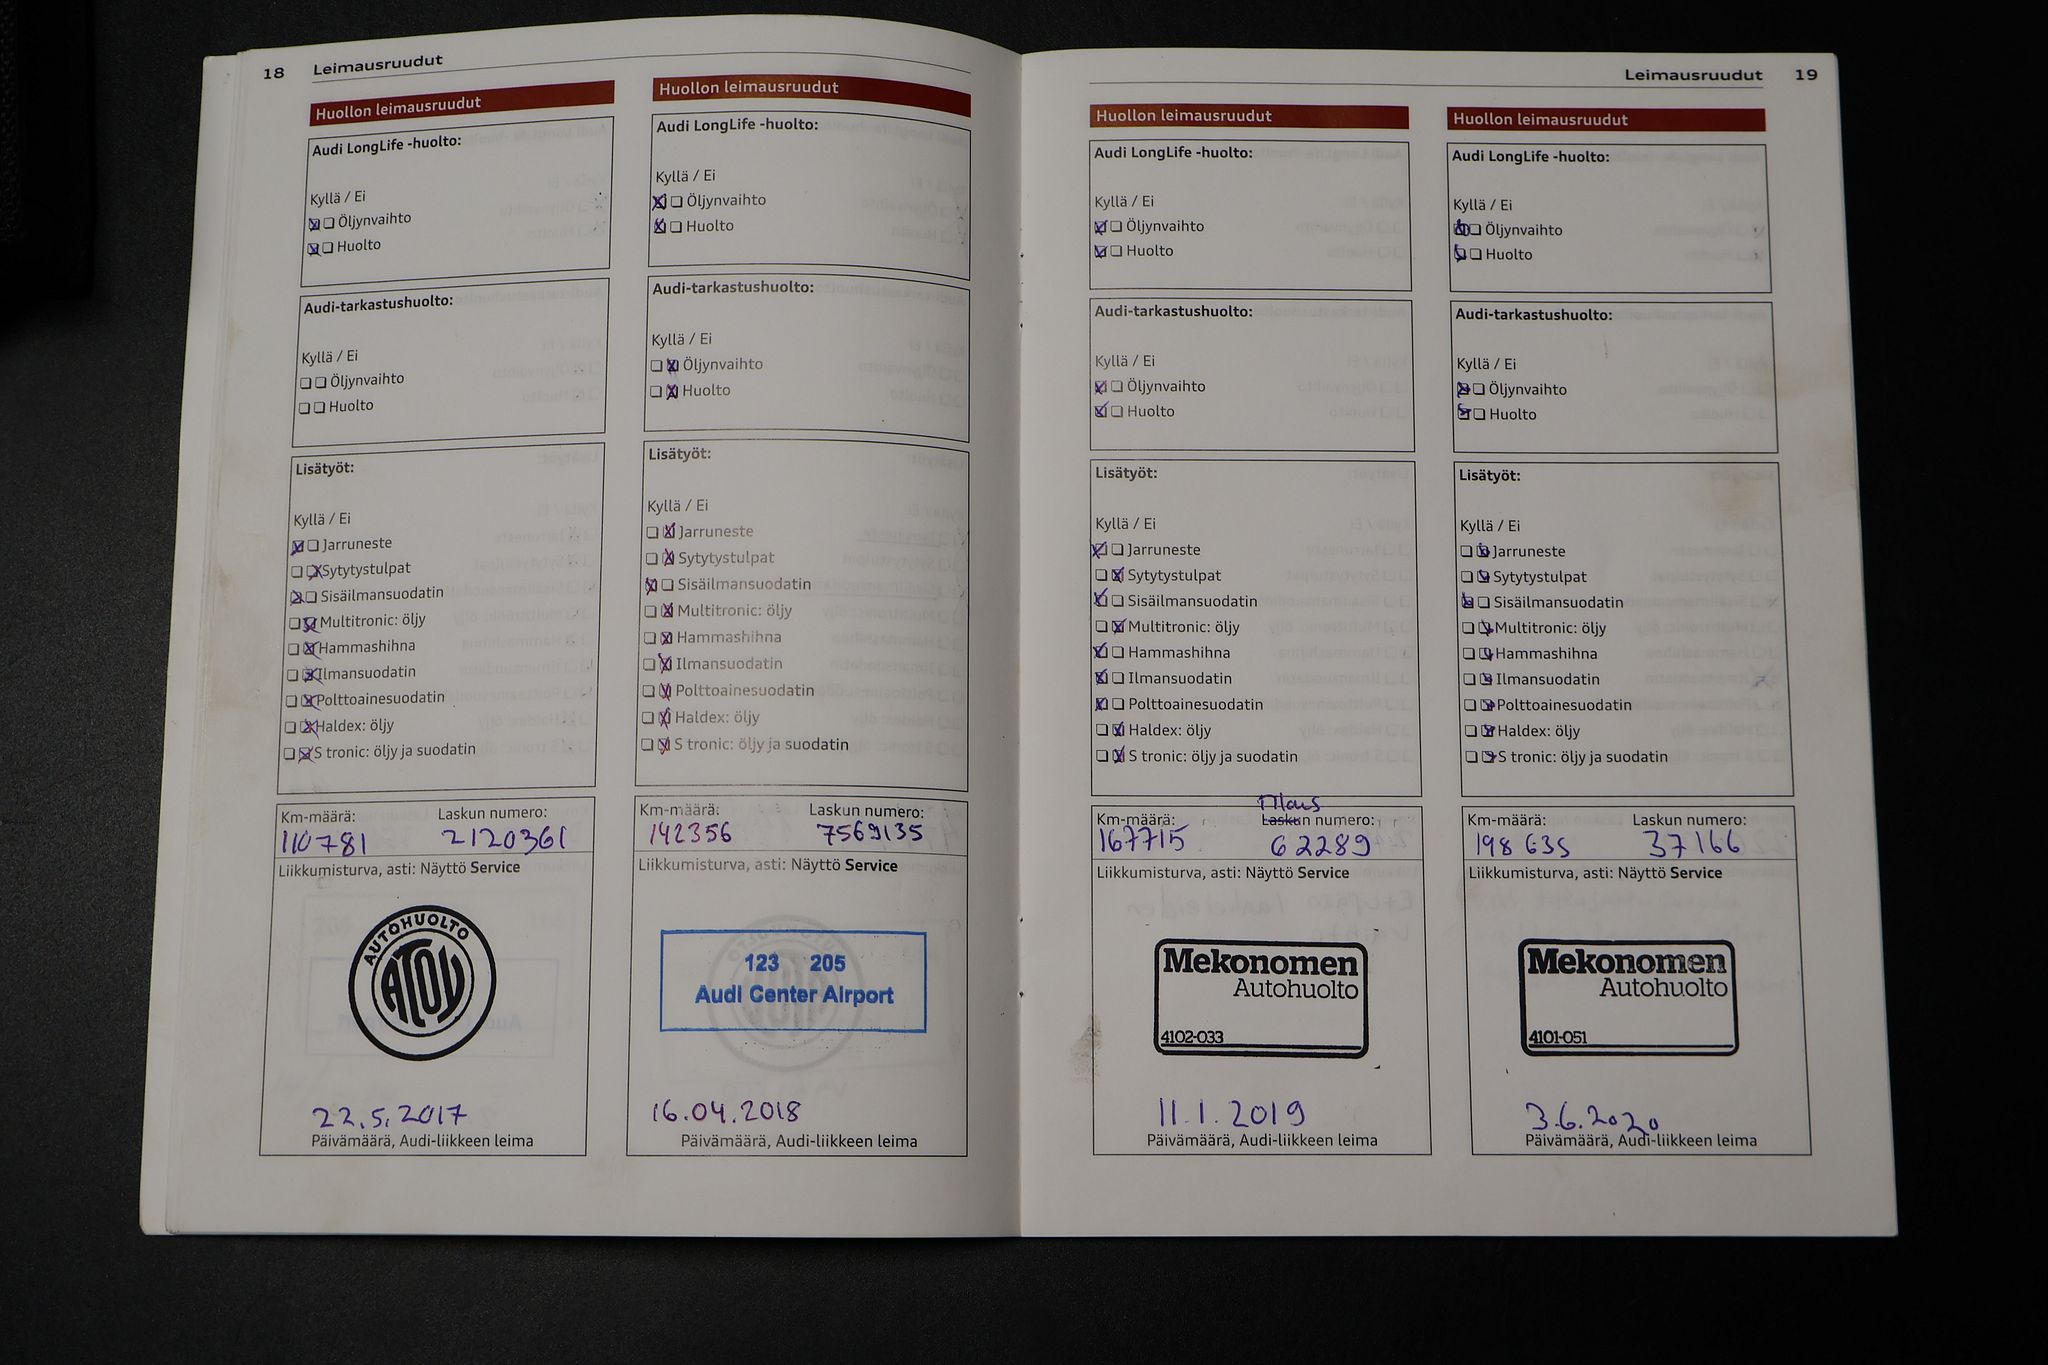 18 Leimausruudut
Huollon leimausruudut
Audi LongLife -huolto:
Kyllä / Ei
Öljynvaihto
Huolto
Audi-tarkastushuolto:
Kyllä / Ei
Öljynvaihto
Huolto
Lisätyöt:
Kyllä / Ei
Jarruneste
Sytytystulpat
Sisäilmansuodatin
Multitronic: öljy
Hammashihna
Ilmansuodatin
Polttoainesuodatin
Haldex: öljy
S tronic: öljy ja suodatin
Km-määrä: Laskun numero:
110781 2120361
Liikkumisturva, asti: Näyttö Service
AUTOHUOLTO
ATOY
22.5.2017
Päivämäärä, Audi-liikkeen leima
Huollon leimausruudut
Audi LongLife -huolto:
Kyllä / Ei
Öljynvaihto
Huolto
Audi-tarkastushuolto:
Kyllä / Ei
Öljynvaihto
Huolto
Lisätyöt:
Kyllä / Ei
Jarruneste
Sytytystulpat
Sisäilmansuodatin
Multitronic: öljy
Hammashihna
Ilmansuodatin
Polttoainesuodatin
Haldex: öljy
S tronic: öljy ja suodatin
Km-määrä: Laskun numero:
142356 7569135
Liikkumisturva, asti: Näyttö Service
123 205
Audi Center Airport
16.04.2018
Päivämäärä, Audi-liikkeen leima
Leimausruudut 19
Huollon leimausruudut
Audi LongLife -huolto:
Kyllä / Ei
Öljynvaihto
Huolto
Audi-tarkastushuolto:
Kyllä / Ei
Öljynvaihto
Huolto
Lisätyöt:
Kyllä / Ei
Jarruneste
Sytytystulpat
Sisäilmansuodatin
Multitronic: öljy
Hammashihna
Ilmansuodatin
Polttoainesuodatin
Haldex: öljy
S tronic: öljy ja suodatin
Km-määrä: Laskun numero:
167715 62289
Liikkumisturva, asti: Näyttö Service
Mekonomen
Autohuolto
4102-033
11.1.2019
Päivämäärä, Audi-liikkeen leima
Huollon leimausruudut
Audi LongLife -huolto:
Kyllä / Ei
Öljynvaihto
Huolto
Audi-tarkastushuolto:
Kyllä / Ei
Öljynvaihto
Huolto
Lisätyöt:
Kyllä / Ei
Jarruneste
Sytytystulpat
Sisäilmansuodatin
Multitronic: öljy
Hammashihna
Ilmansuodatin
Polttoainesuodatin
Haldex: öljy
S tronic: öljy ja suodatin
Km-määrä: Laskun numero:
198635 37166
Liikkumisturva, asti: Näyttö Service
Mekonomen
Autohuolto
4101-051
3.6.2020
Päivämäärä, Audi-liikkeen leima